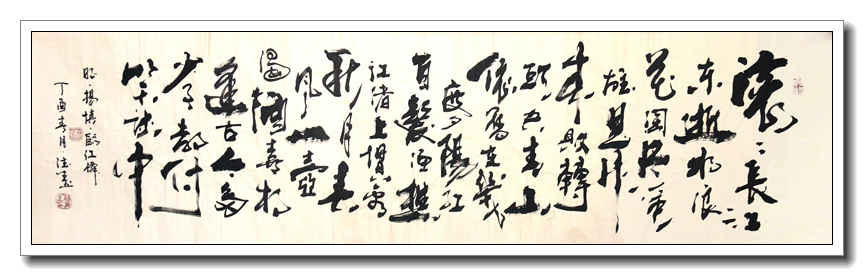 滚滚长江
东逝水浪
花淘尽英
雄是非
成败轉
头空青山
依舊在幾
度夕陽红
白髮漁樵
江渚上惯看
秋月春
风一壺
浊酒喜相
逢古今多
少事都付
笑谈中
明·楊慎·臨江仙
丁酉春月